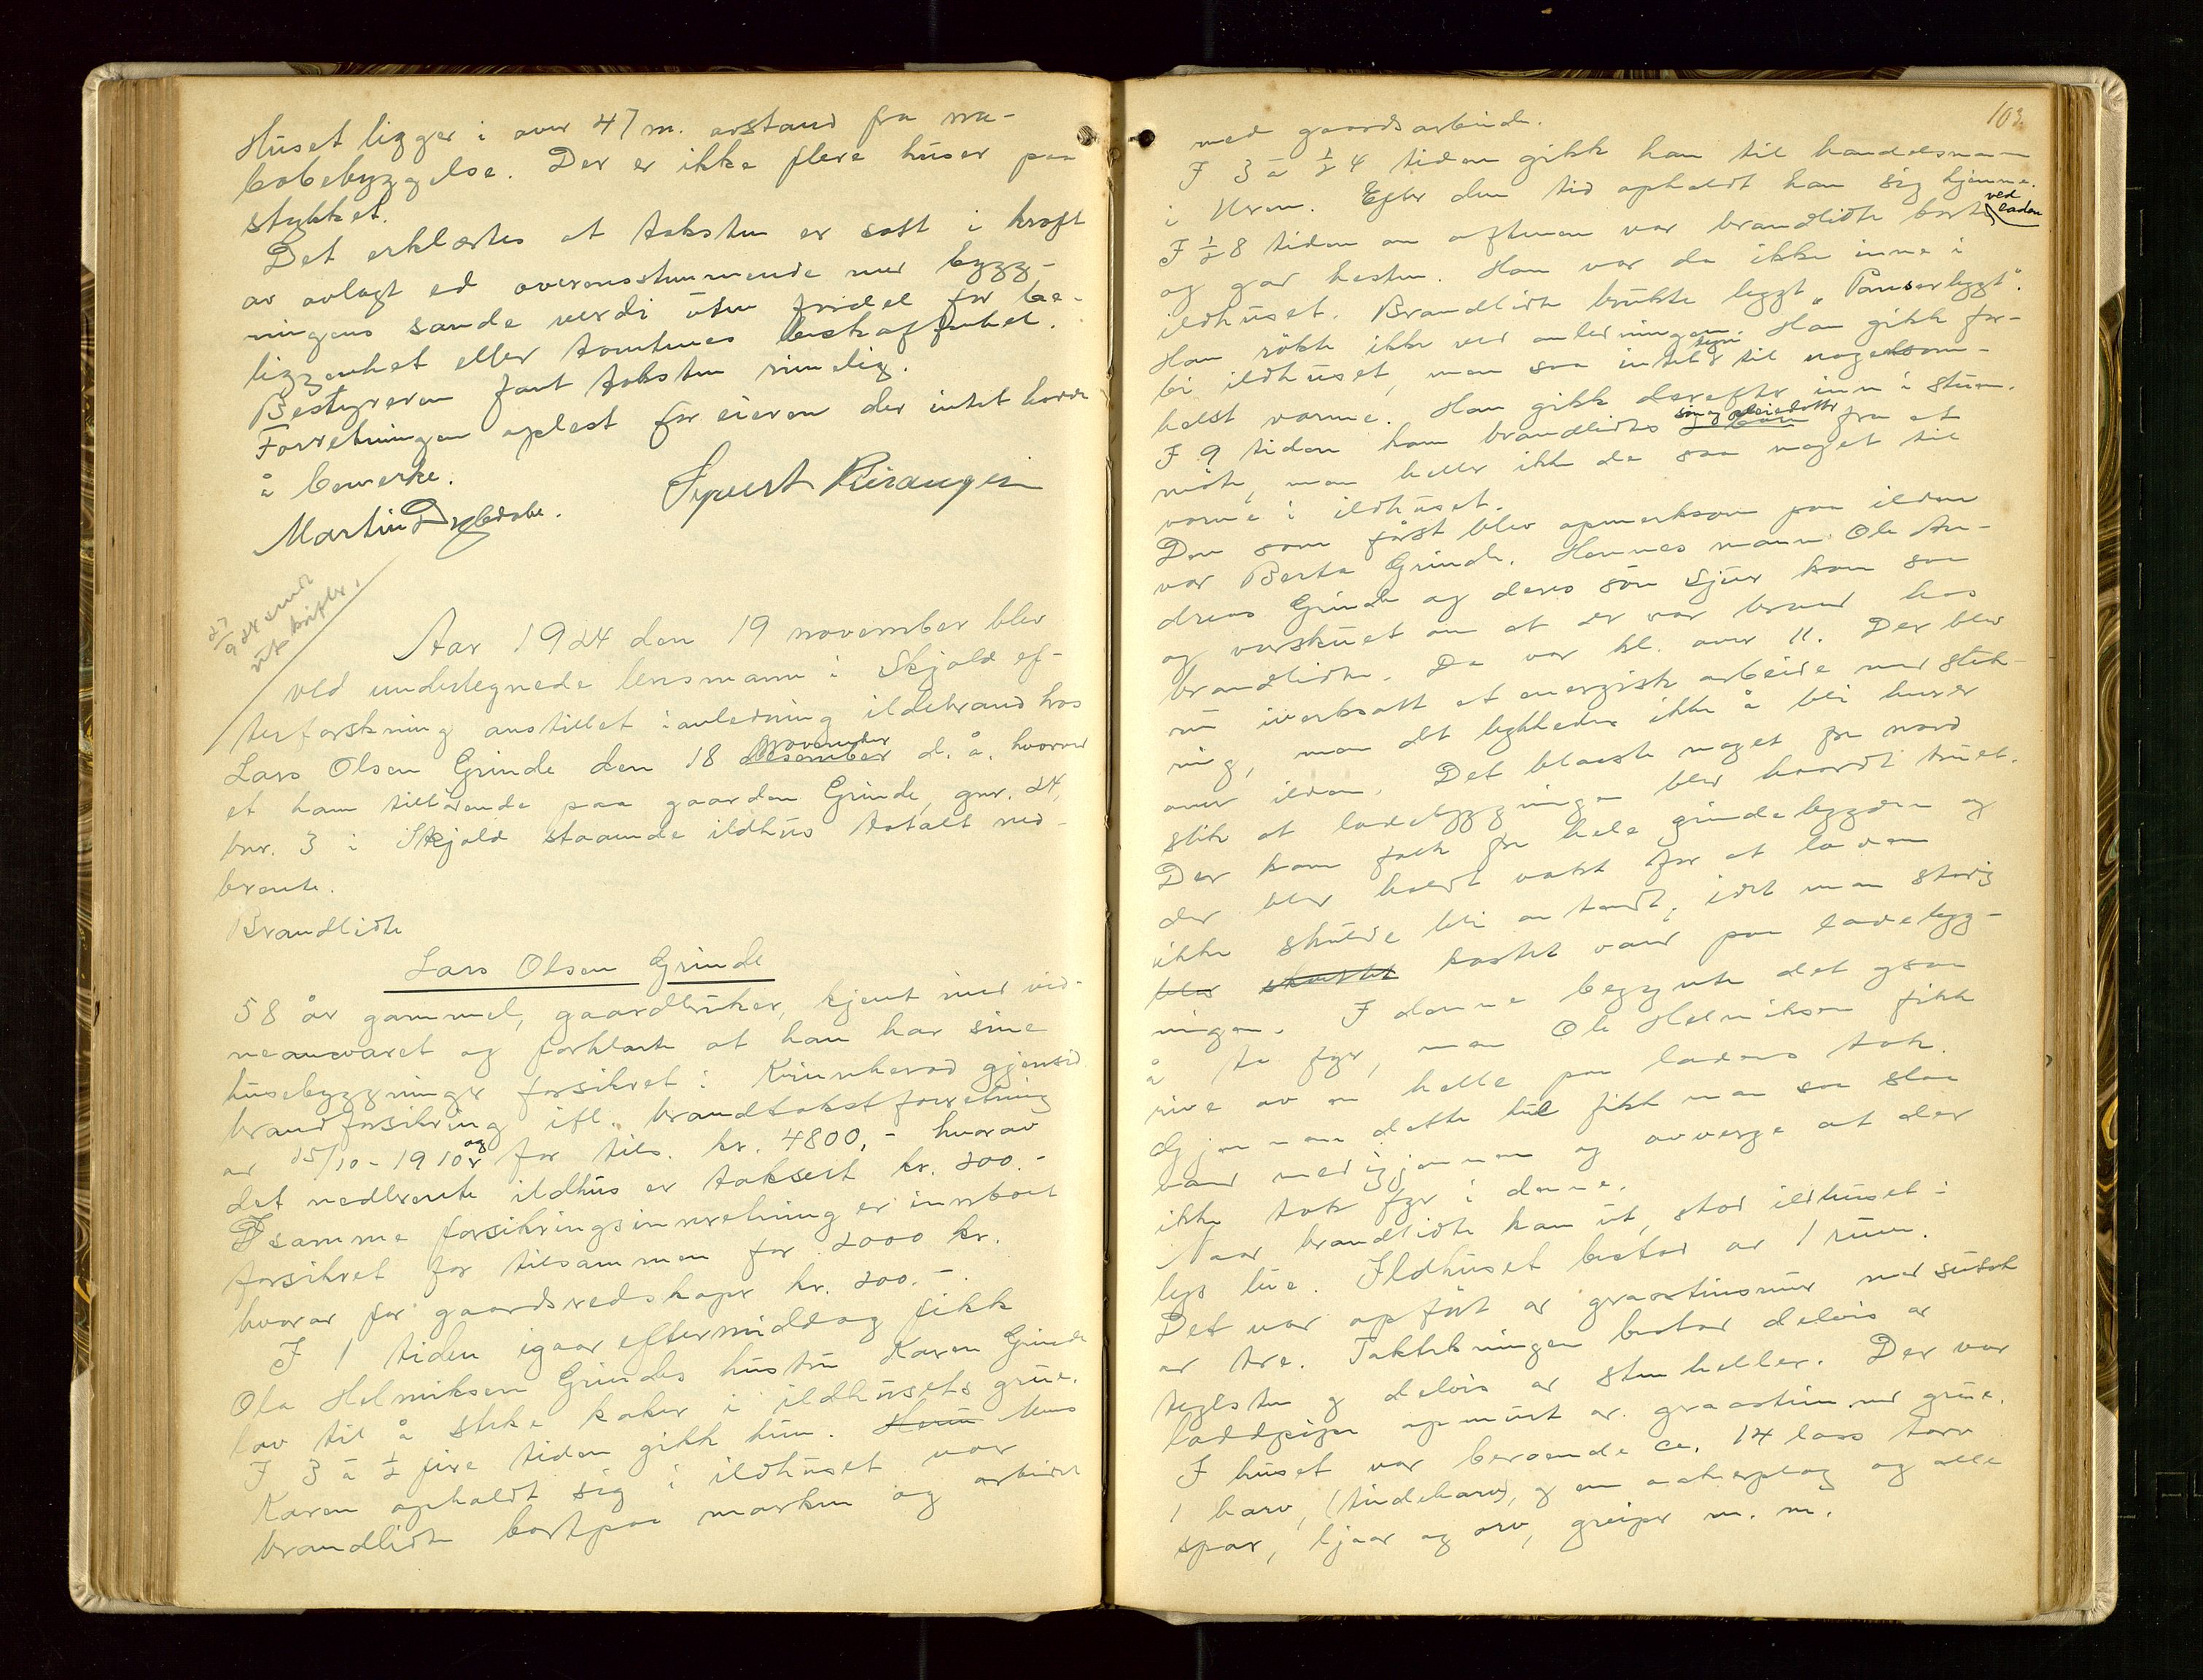 Huset ligger i over 47 m. avstand fra na-
bobebyggelse. Der er ikke flere huser paa
stykket.
Det erklærtes at taksten er satt i kraft
av avlagt ed overensstemmende med bygg-
ningens sande verdi uten fradel for be-
liggenhet eller tomtenes beskaffenhet.
Bestyreren fant taksten rimelig.
Forretningen oplest for eieren der intet havde
å bemerke.
Martin
27/9 24 sendt
utskrifter.
Aar 1924 den 19 november blev
ved undertegnede lensmann i Skjold ef-
terforskning anstillet i anledning ildebrand hos
Lars Olsen Grinde den 18 desember november d. å. hvorved
et ham tillörende paa gaarden Grinde, gnr. 24,
bnr. 3 i Skjold staaende ildhus totalt ned-
brente.
Brandlidte
Lars Olsen Grinde
58 år gammel, gaardbruker, kjent med vid-
neansvaret og forklarte at han har sine
husebyggninger forsikret i Krinnherad gjensid
brandforsikring ifl. brandtakstforretning
av 25/10-1910 og for tils. kr. 4800,- hvorav
det nedbrente ildhus er taksert kr. 200.-
I samme forsikringsinnretning er innboet
forsikret for tilsammen for 2000 kr.
hvorav for gaardsredskaper kr. 200.-
I 1 tiden igaar eftermiddag fikk
Ola Helmiksen Grindes hustru Karen Grinde
lov til å steke kaker i ildhusets grue.
I 3 à ½ fire tiden gikk hun. Hun Mens
Karen opholdt sig i ildhuset var
brandlidte bortpaa marken og arbeidet
103.
med gaardsarbeide.
I 3 à ½ 4 tiden gikk han til handelsmann
i Ureen. Efter den tid opholdt han sig hjemme.
I ½ 8 tiden om aftenen var brandlidte borte ved laden
og gav hesten. Han var da ikke inne i
ildhuset. Brandlidte brukte lygt „Panserlygt".
Han rökte ikke ved anledningen. Han gikk for-
bi ildhuset, men saa intet tegn til nogensom-
helst varme. Han gikk derefter inn i stuen.
I 9 tiden kom brandlidtes sön og pleiedatter fra et
möte, men heller ikke de saa noget til
varme i ildhuset.
Den som först blev opmerksom paa ilden
var Berta Grinde. Hennes mann Ole An-
dreas Grinde og deres sön Sjur kom saa
og varskuet om at der var brand hos
brandlidte. Da var kl. over 11. Der blev
nu iverksatt et energisk arbeide med sluk-
ning, men det lykkedes ikke å bli herrer
over ilden. Det blaaste noget fra nord
slik at ladebyggningen blev haardt truet.
Der kom folk fra hele grindebygden og
der blev holdt vakt for at laden
ikke skulde bli antendt, idet man stadig
blev kastet vand paa ladebygg-
ningen. I denne begynte det ogsaa
å ta fyr, men Ole Helmiksen fikk
rive av en helle paa ladens tak.
Gjennem dette hul fikk man saa slaa
vand ned igjennem og avverge at der
ikke tok fyr i denne.
Naar brandlidte kom ut, stod ildhuset i
lys lue. Ildhuset bestod av 1 rum.
Det var opfört av graastensmur med
av tre. Taktekningen bestod delvis av
teglsten og delvis av stenheller. Der var
loddpipe opmurt av graasten med grue.
I huset var beroende ca. 14 lass torv
1 harv, (tindeharv), og en aakerplog og alle
spar, ljaar og orv, greiper m. m.